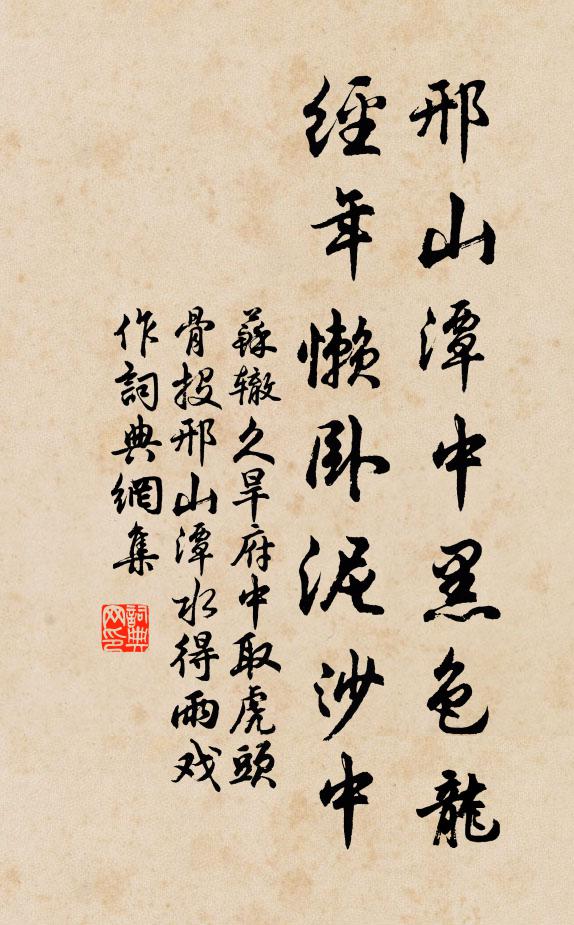 邢山潭中黑色龍
經年懶卧泥沙中
蘇辙久旱府中取虎頭
骨投邢山潭水得雨戏
作詞典網集
詞典
网印